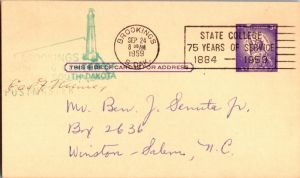 BROOKINGS
SEP 24
8 30 AM
1959
S. DAK.
STATE COLLEGE
75 YEARS OF SERVICE
1884 — 1959
DAKOTA
THIS SIDE OF CARD IS FOR ADDRESS
Mr. Ben J. Senuta Jr.
Box 2636
Winston-Salem, N.C.